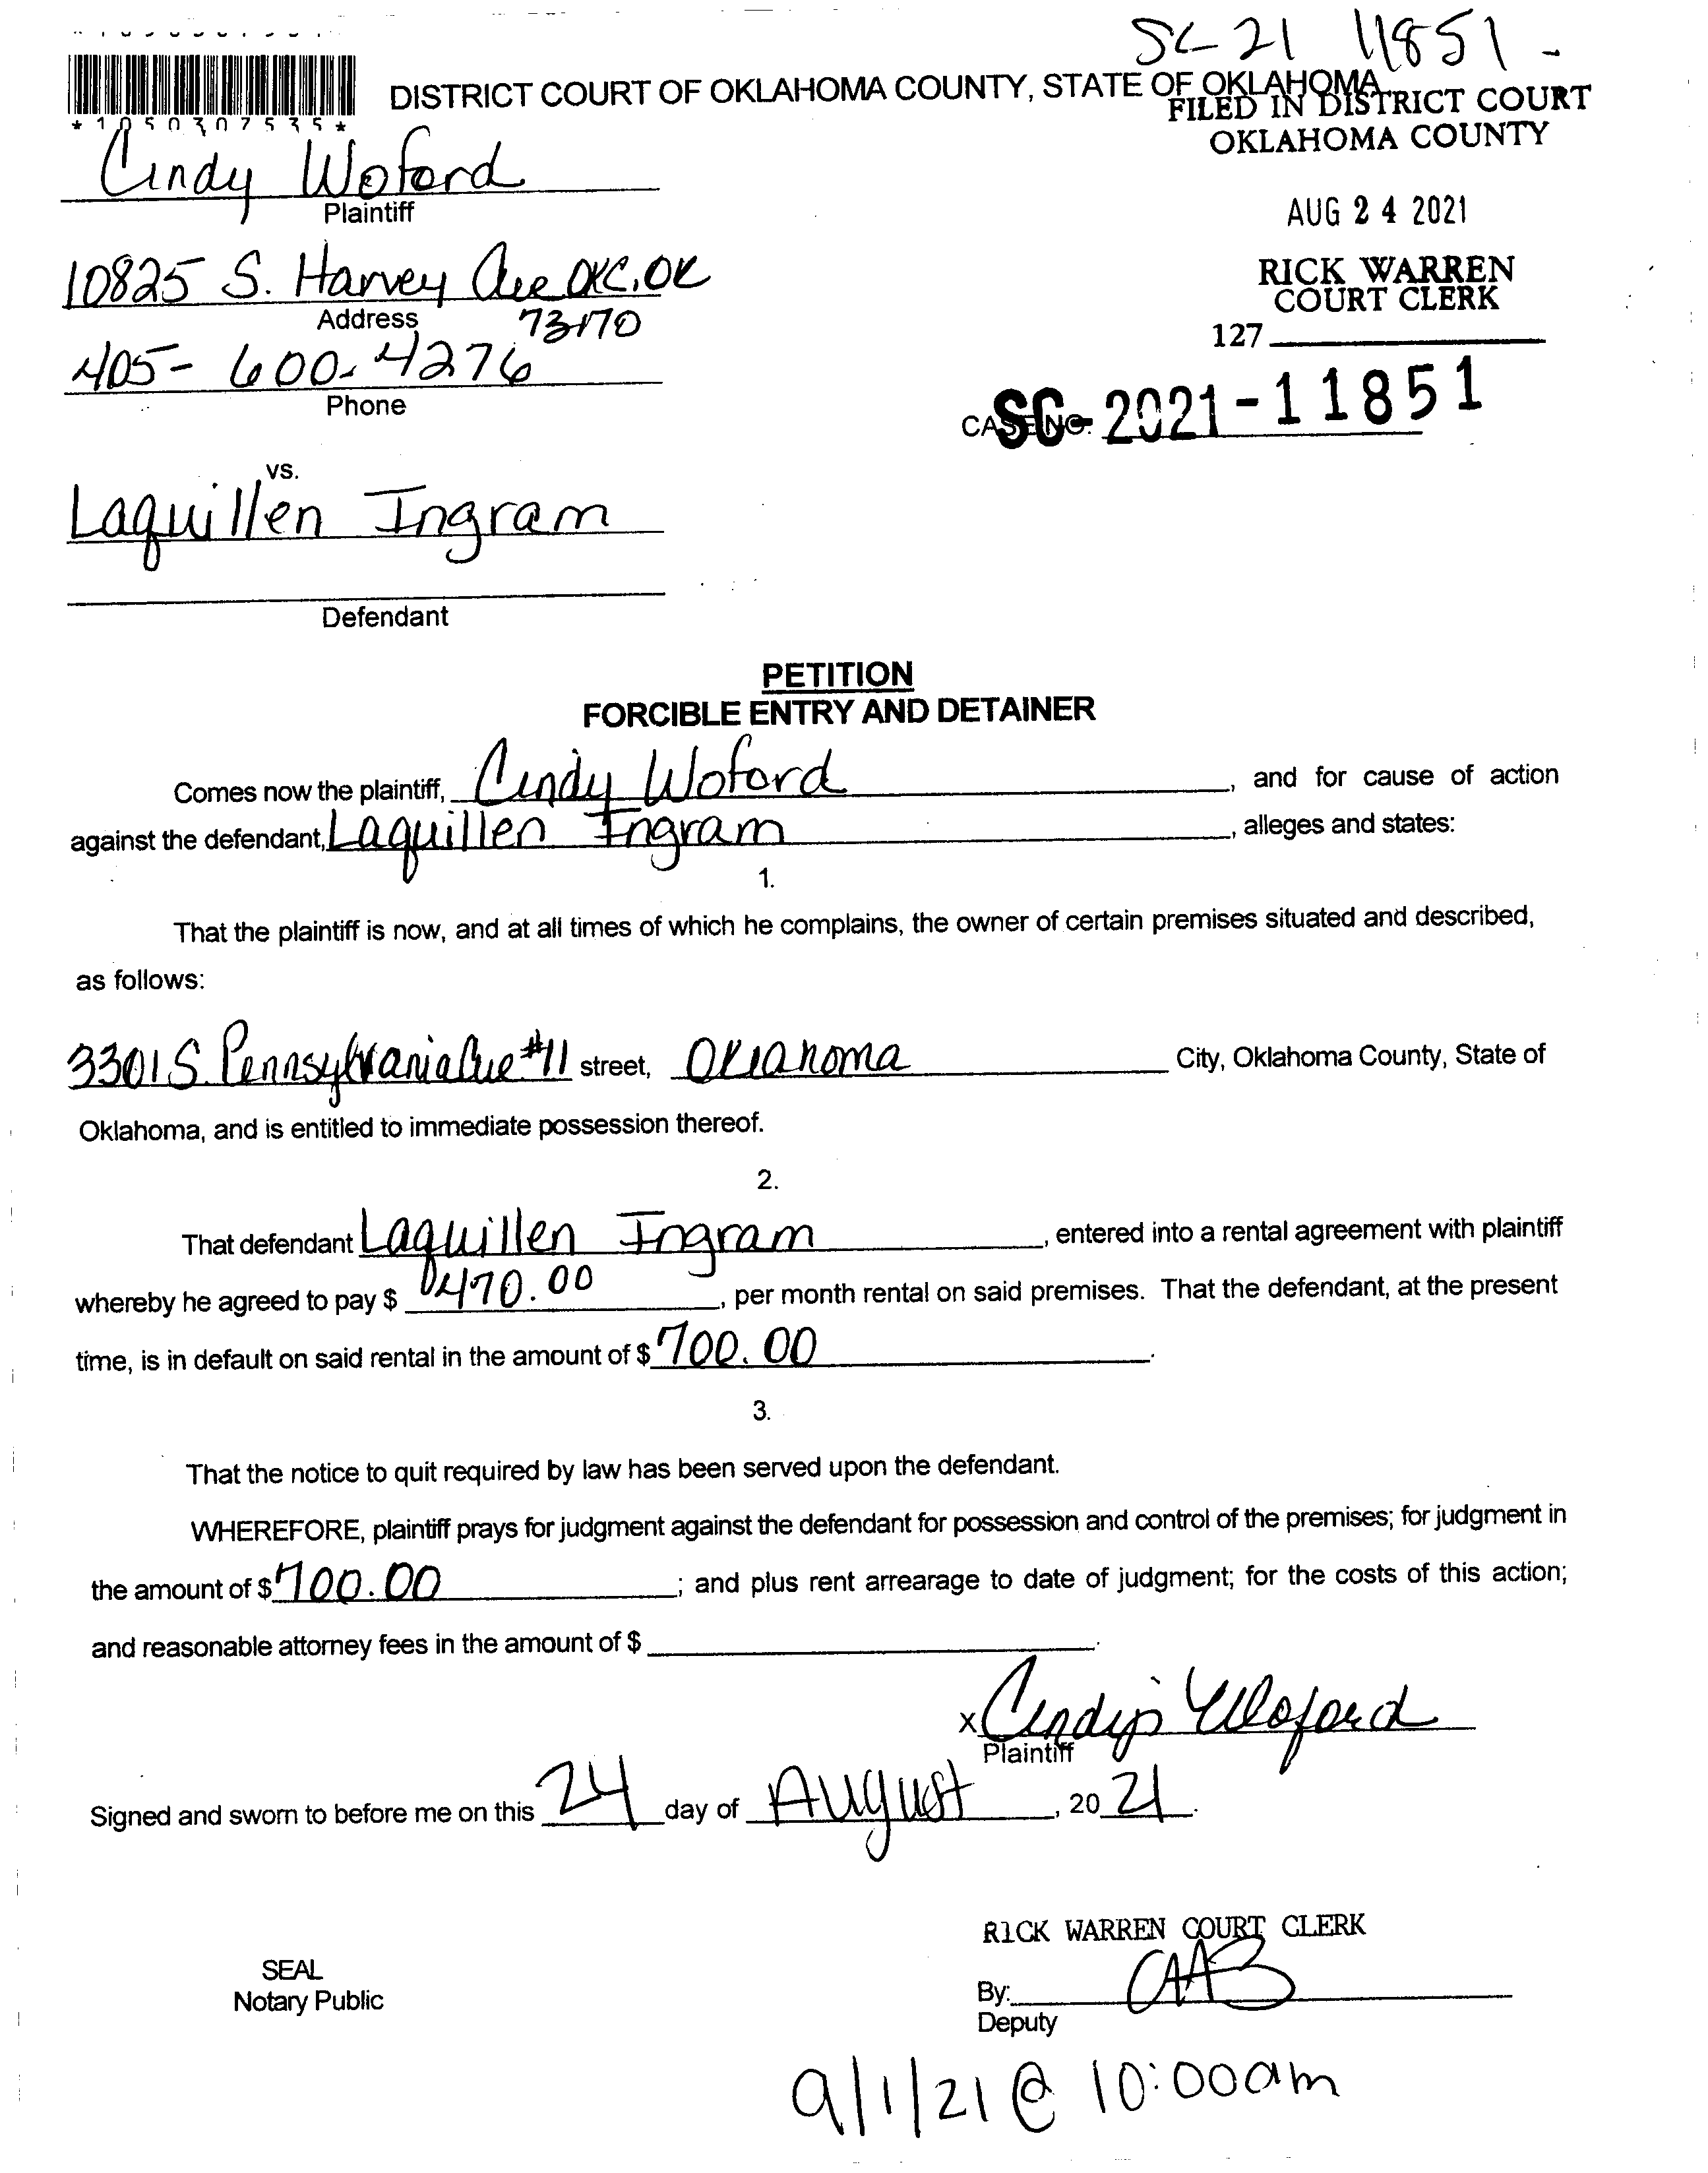 SC 21 11851 -
*1050307535*
DISTRICT COURT OF OKLAHOMA COUNTY, STATE OF OKLAHOMA
FILED IN DISTRICT COURT
OKLAHOMA COUNTY
Cindy Woford
Plaintiff
AUG 24 2021
10825 S. Harvey Ave OKC, OK
Address 73170
RICK WARREN
COURT CLERK
127
405-600-4276
Phone
CASE NO. SC-2021-11851
vs.
Laquillen Ingram
Defendant
PETITION
FORCIBLE ENTRY AND DETAINER
Comes now the plaintiff, Cindy Woford, and for cause of action
against the defendant, Laquillen Ingram, alleges and states:
1.
That the plaintiff is now, and at all times of which he complains, the owner of certain premises situated and described,
as follows:
3301 S. Pennsylvania Ave #11 street, Oklahoma City, Oklahoma County, State of
Oklahoma, and is entitled to immediate possession thereof.
2.
That defendant Laquillen Ingram, entered into a rental agreement with plaintiff
whereby he agreed to pay $ 470.00, per month rental on said premises. That the defendant, at the present
time, is in default on said rental in the amount of $ 700.00.
3.
That the notice to quit required by law has been served upon the defendant.
WHEREFORE, plaintiff prays for judgment against the defendant for possession and control of the premises; for judgment in
the amount of $ 700.00; and plus rent arrearage to date of judgment; for the costs of this action;
and reasonable attorney fees in the amount of $ .
X Cindy Woford
Plaintiff
Signed and sworn to before me on this 24 day of August, 20 21.
RICK WARREN COURT CLERK
SEAL
Notary Public
By: CAAB
Deputy
9/1/21 @ 10:00am